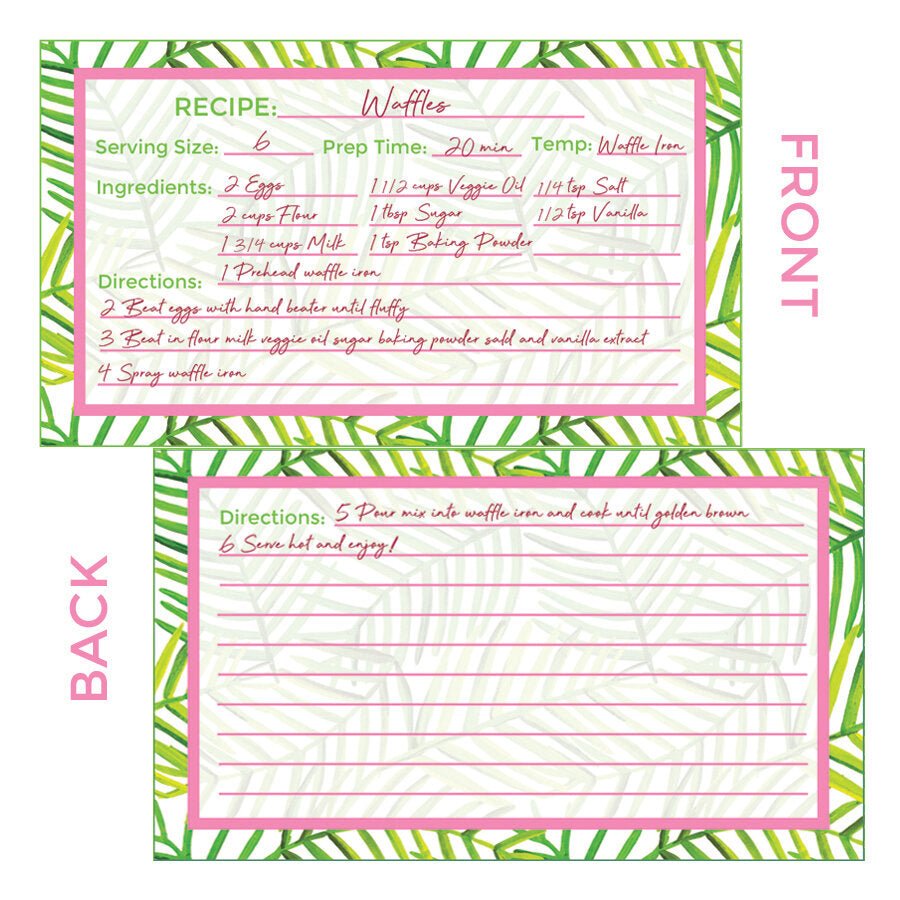 RECIPE: Waffles
Serving Size: 6 Prep Time: 20 min Temp: Waffle Iron
Ingredients: 2 Eggs 1 1/2 cups Veggie Oil 1/4 tsp Salt
2 cups Flour 1 tbsp Sugar 1/2 tsp Vanilla
1 3/4 cups Milk 1 tsp Baking Powder
Directions: 1 Prehead waffle iron
2 Beat eggs with hand beater until fluffy
3 Beat in flour milk veggie oil sugar baking powder sald and vanilla extract
4 Spray waffle iron
FRONT
Directions: 5 Pour mix into waffle iron and cook until golden brown
6 Serve hot and enjoy!
BACK